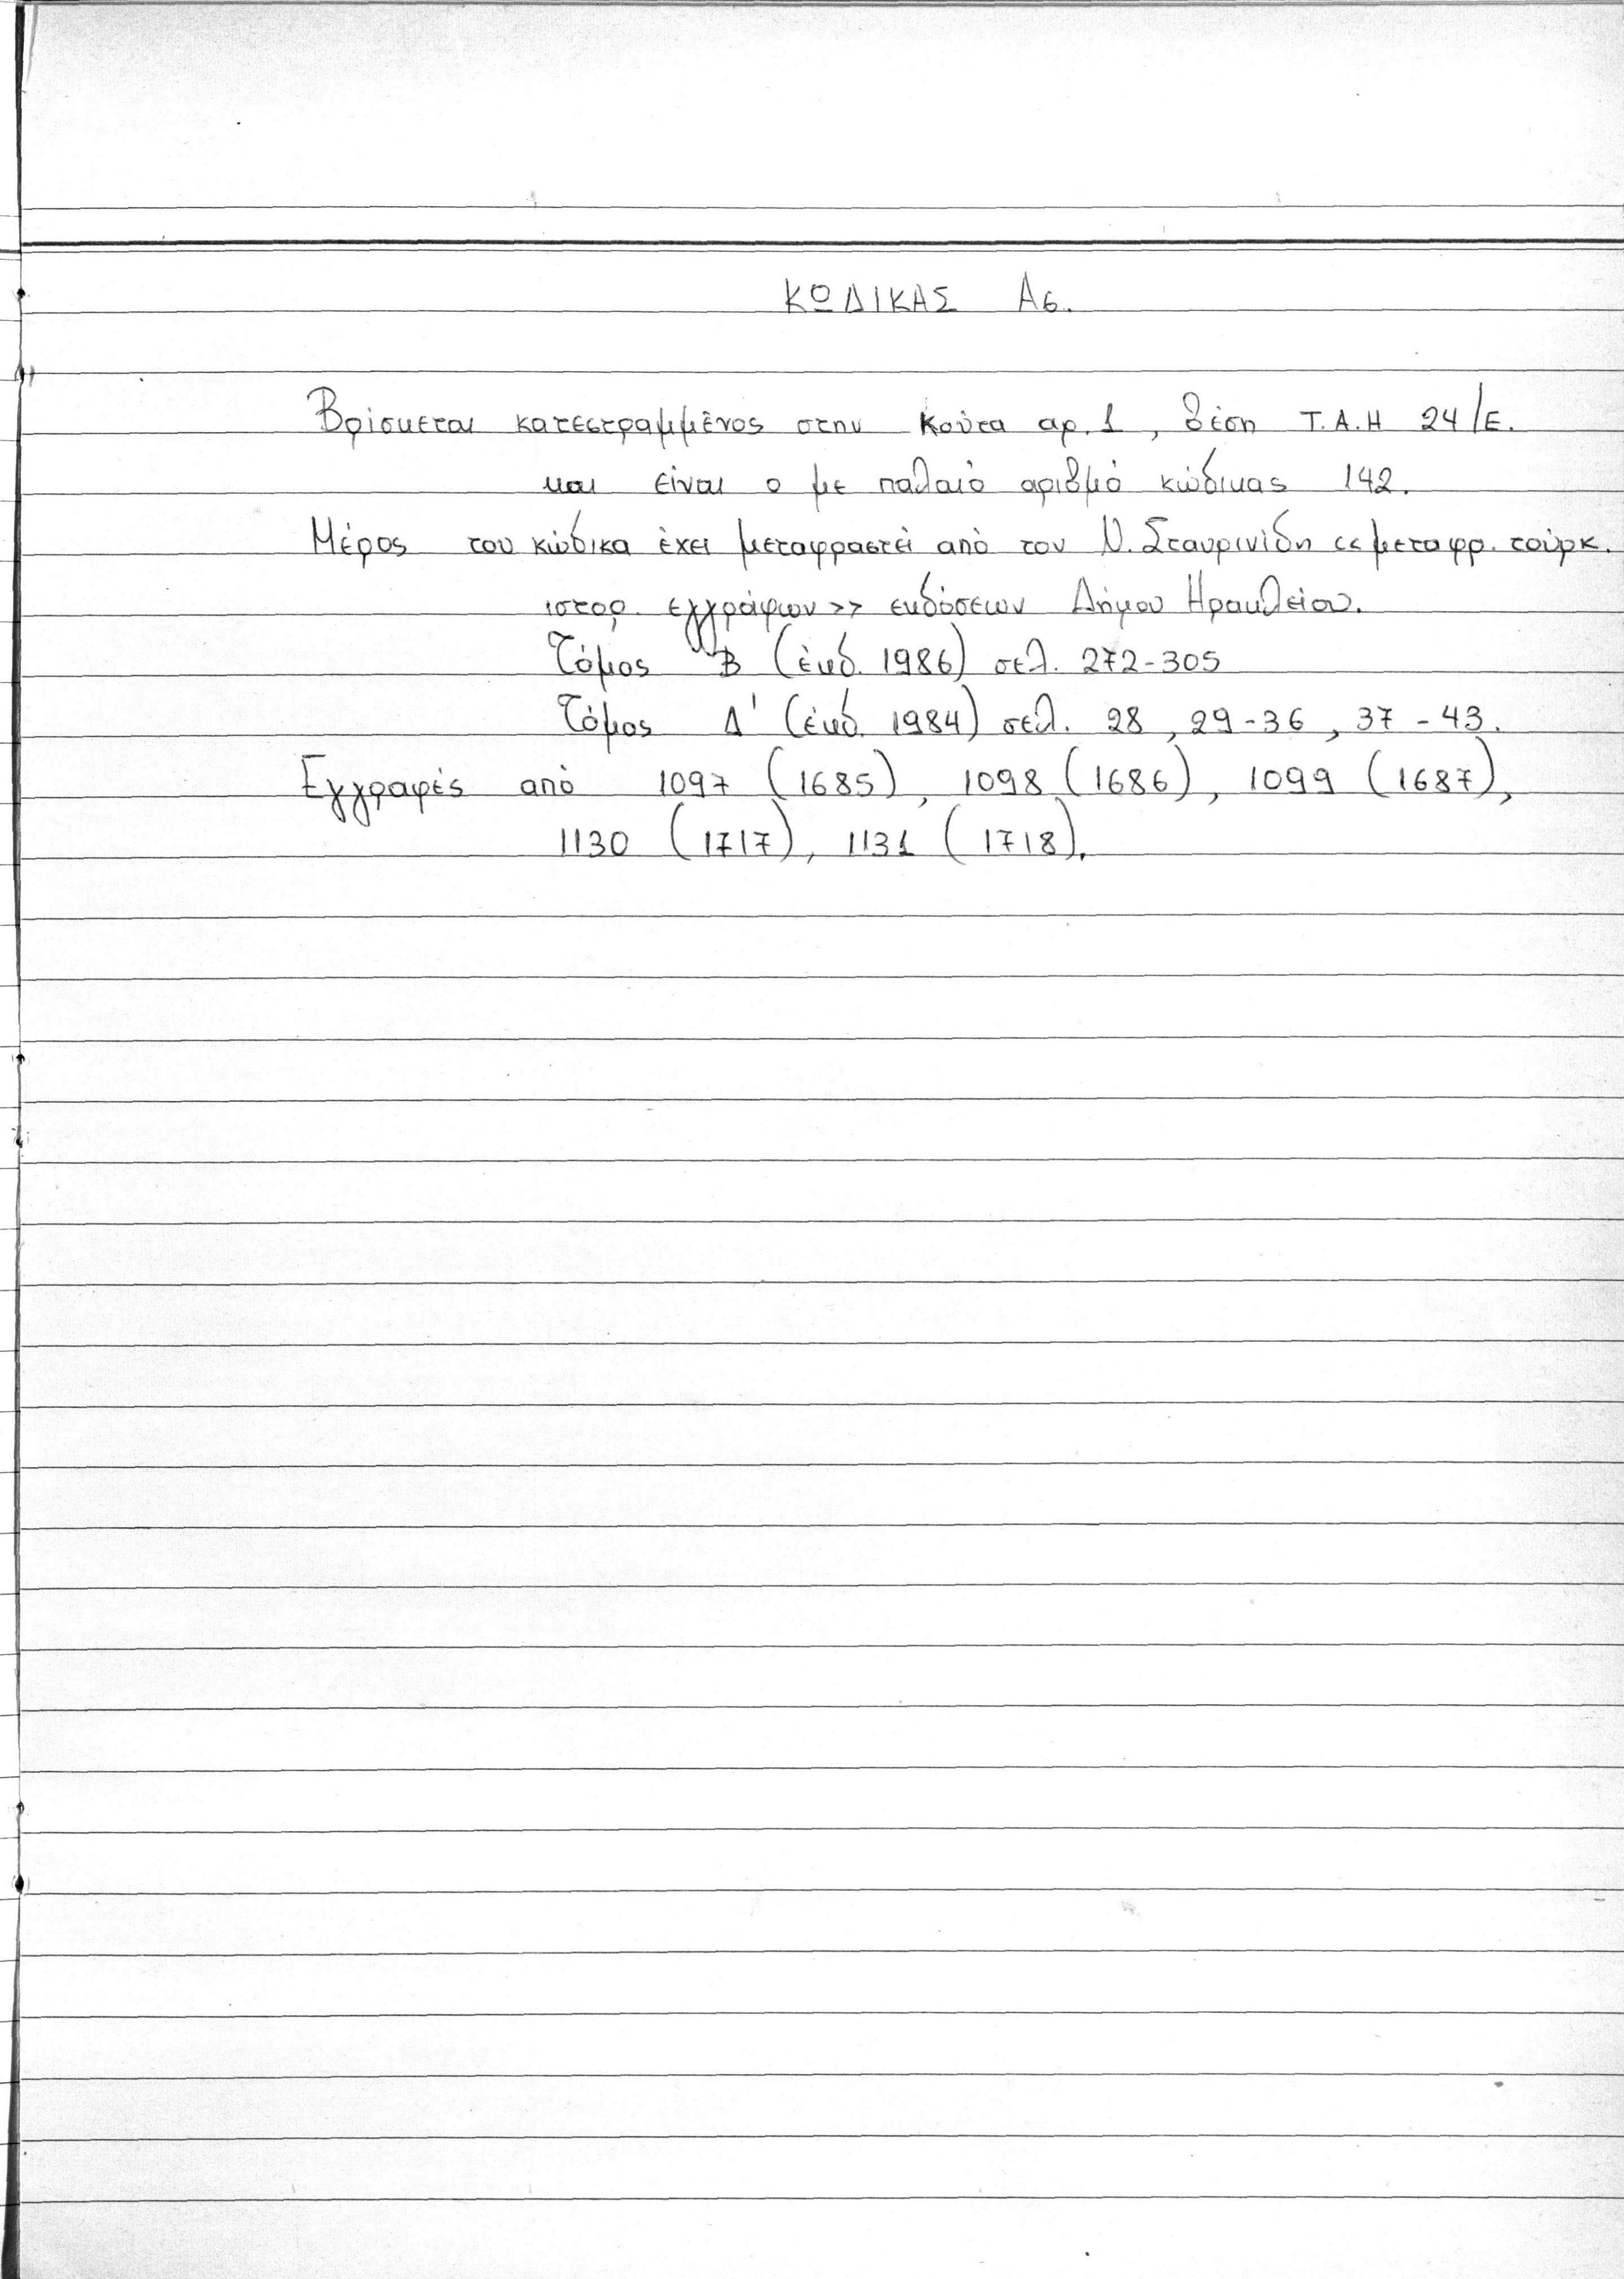 ΚΩΔΙΚΑΣ Α6.
Βρίσκεται κατεστραμμένος στην κούτα αρ. 1, θέση Τ.Α.Η 24/Ε.
και είναι ο με παλαιό αριθμό κώδικας 142.
Μέρος του κώδικα έχει μεταφραστεί από τον Ν. Σταυρινίδη << μεταφρ. τούρκ.
ιστορ. εγγράφων >> εκδόσεων Δήμου Ηρακλείου.
Τόμος Β (έκδ. 1986) σελ. 272-305
Τόμος Δ' (έκδ. 1984) σελ. 28, 29-36, 37-43.
Εγγραφές από 1097 (1685), 1098 (1686), 1099 (1687),
1130 (1717), 1131 (1718).